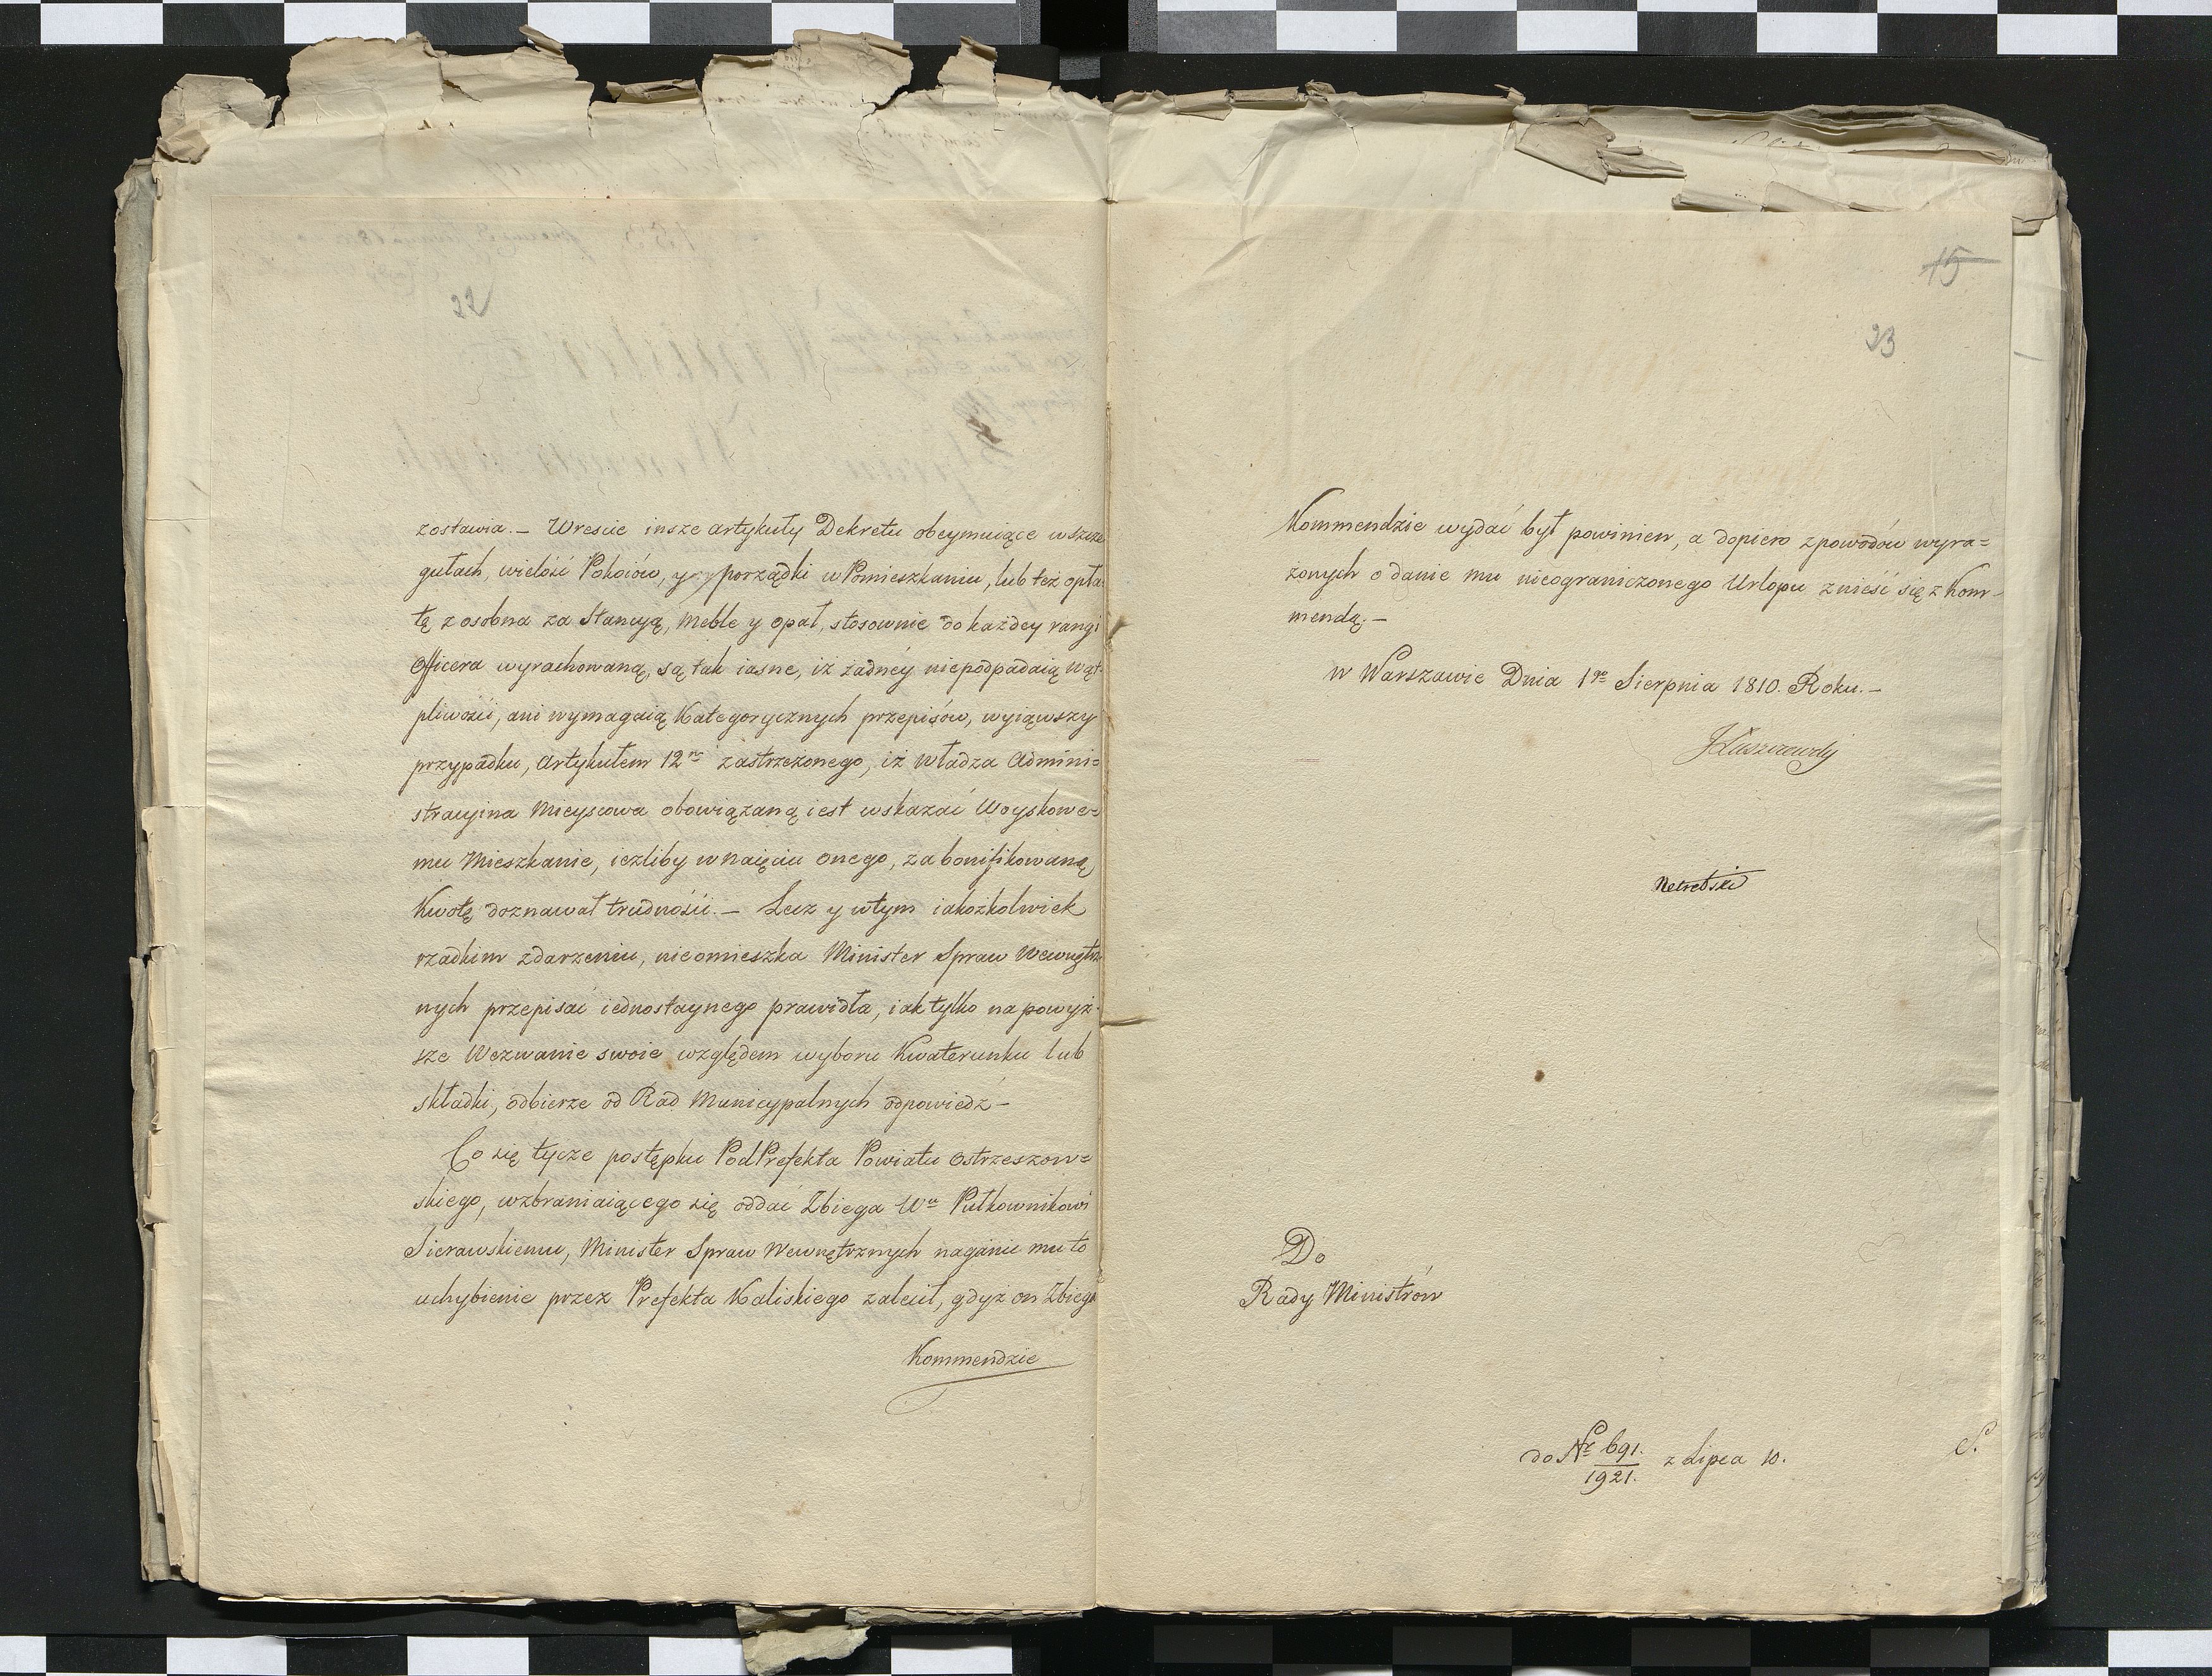 22
zostawia. – Wreście insze artykuły Dekretu obeymuiące wszcze
gułach, wielość Pokoiów, y porządki w Pomieszkaniu, lub też opła-
tę z osobna za Stancyą, Meble y opał, stosownie do każdey rangi
Officera wyrachowaną, są tak iasne, iż żadnéy niepodpadaią wąt-
pliwości, ani wymagaią Kategorycznych przepisów, wyiąwszy
przypadku, Artykułem 12m zastrzeżonego, iż władza Admini=
stracyina Mieyscowa obowiązaną iest wskazać Woyskowe=
mu Mieszkanie, ieżliby w naięciu onego, za bonifikowaną
Kwotę doznawał trudności. – Lecz y w tym iakożkolwiek
rzadkim zdarzeniu, nieomieszka Minister Spraw Wewnętrz
nych przepisać iednostaynego prawidła, iak tylko na powyż-
sze Wezwanie swoie względem wyboru Kwaterunku lub
składki, odbierze od Rad Municypalnych odpowiedź –
Co się tycze postępku PodPrefekta Powiatu Ostrzeszow=
skiego, wzbraniaiącego się oddać Zbiega Wu Pułkownikowi
Sierawskiemu, Minister Spraw Wewnętrznych naganić mu to
uchybienie przez Prefekta Kaliskiego zalecił, gdyż on Zbiega
Kommendzie
15
23
Kommendzie wydać był powinien, a dopiero z powodów wyra=
żonych o danie mu nieograniczonego Urlopu znieść się z Kom-
mendą. –
w Warszawie Dnia 1go Sierpnia 1810. Roku. –
Do
Rady Ministrów
do Nr 691./1921. z Lipca 10.
S.